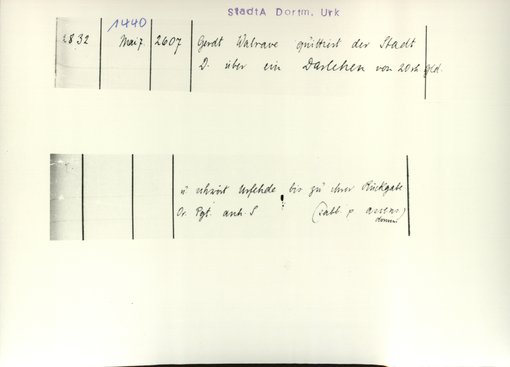 StadtA Dortm. Urk
1440
2832 Mai 7. 2607 Gerdt Walrave quittiert der Stadt
D. über ein Darlehen von 20 rh. Gld.
u schwört Urfehde bis zu ihrer Rückgabe
Or. Pgt. anh. S